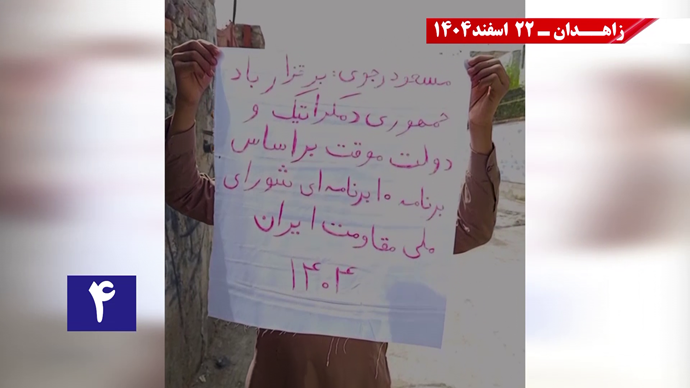 زاهـدان ـ ۲۲ اسفند۱۴۰۴
مسعود رجوی: برقرار باد
جمهوری دمکراتیک و
دولت موقت براساس
برنامه ۱۰ برنامه ای شورای
ملی مقاومت ایران
۱۴۰۴
۴